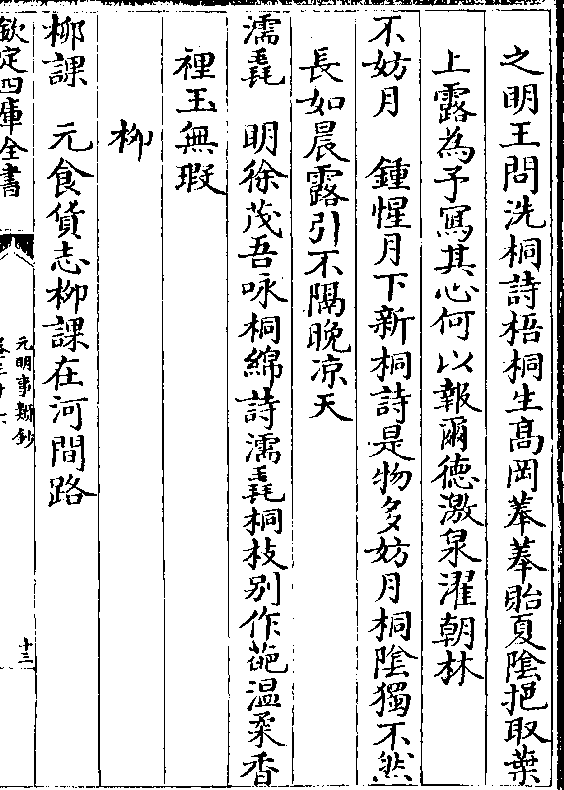 之明王問洗桐詩梧桐生髙岡菶菶貽夏隂挹取葉
上露為予寫其心何以報爾德激泉濯朝林
不妨月　鍾惺月下新桐詩是物多妨月桐隂獨不然
長如晨露引不隔晚凉天
濡毳　明徐茂吾咏桐綿詩濡毳桐枝别作葩温柔香
裡玉無瑕
柳
柳課　元食貨志柳課在河間路
欽定四庫全書
元明事類鈔
十三